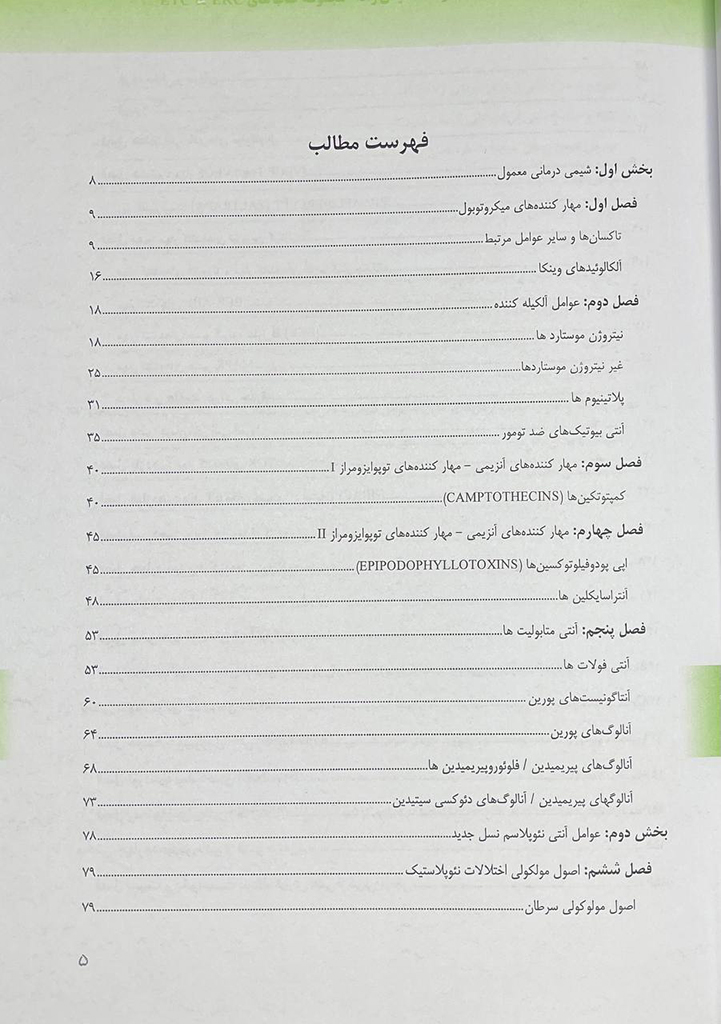 فهرست مطالب
بخش اول: شیمی درمانی معمول ۸
فصل اول: مهار کننده‌های میکروتوبول ۹
تاکسان‌ها و سایر عوامل مرتبط ۹
آلکالوئیدهای وینکا ۱۶
فصل دوم: عوامل آلکیله کننده ۱۸
نیتروژن موستارد ها ۱۸
غیر نیتروژن موستاردها ۲۵
پلاتینیوم ها ۳۱
آنتی بیوتیک‌های ضد تومور ۳۵
فصل سوم: مهار کننده‌های آنزیمی - مهار کننده‌های توپوایزومراز I ۴۰
کمپتوتکین‌ها (CAMPTOTHECINS) ۴۰
فصل چهارم: مهار کننده‌های آنزیمی - مهار کننده‌های توپوایزومراز II ۴۵
اپی پودوفیلوتوکسین‌ها (EPIPODOPHYLLOTOXINS) ۴۵
آنتراسایکلین ها ۴۸
فصل پنجم: آنتی متابولیت ها ۵۳
آنتی فولات ها ۵۳
آنتاگونیست‌های پورین ۶۰
آنالوگ‌های پورین ۶۴
آنالوگ‌های پیریمیدین / فلوئوروپیریمیدین ها ۶۸
آنالوگهای پیریمیدین / آنالوگ‌های دئوکسی سیتیدین ۷۳
بخش دوم: عوامل آنتی نئوپلاسم نسل جدید ۷۸
فصل ششم: اصول مولکولی اختلالات نئوپلاستیک ۷۹
اصول مولوکولی سرطان ۷۹
۵